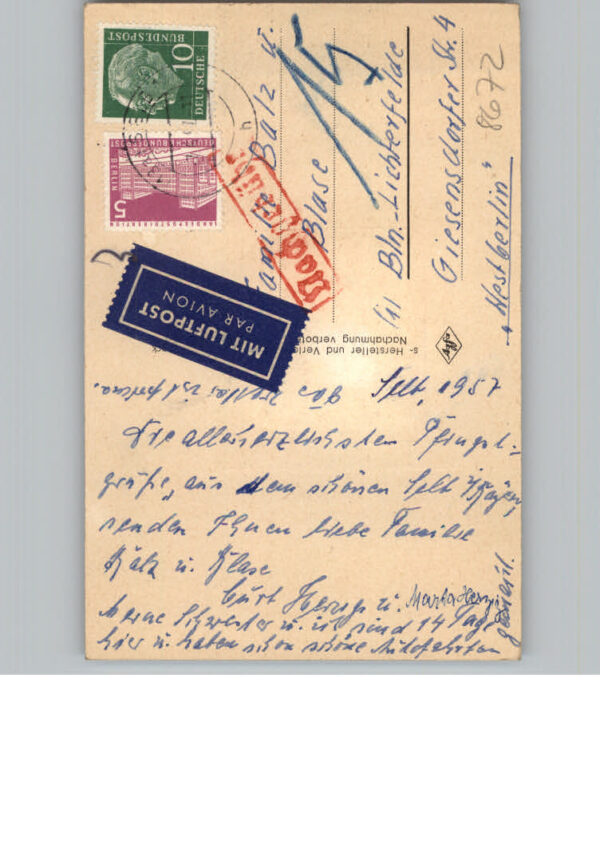 Selb, 1957
Die allerherzlichsten Pfingst-
grüße, aus dem schönen Selb i/Bayern,
senden Ihnen liebe Familie
Balz u. Blase
Curt Herzog u. Marta Herzog
Meine Schwester u. ich sind 14 Tage
hier u. haben schon schöne Autofahrten
gemacht.
Familie Balz u.
Blase
Bln.-Lichterfelde
Giesensdorfer Str. 4
"Westberlin"
8672
15
Nachgebühr
MIT LUFTPOST
PAR AVION
Hersteller und
Nachahmung verboten
Agfa
10
DEUTSCHE
BUNDESPOST
5
DEUTSCHE BUNDESPOST
BERLIN